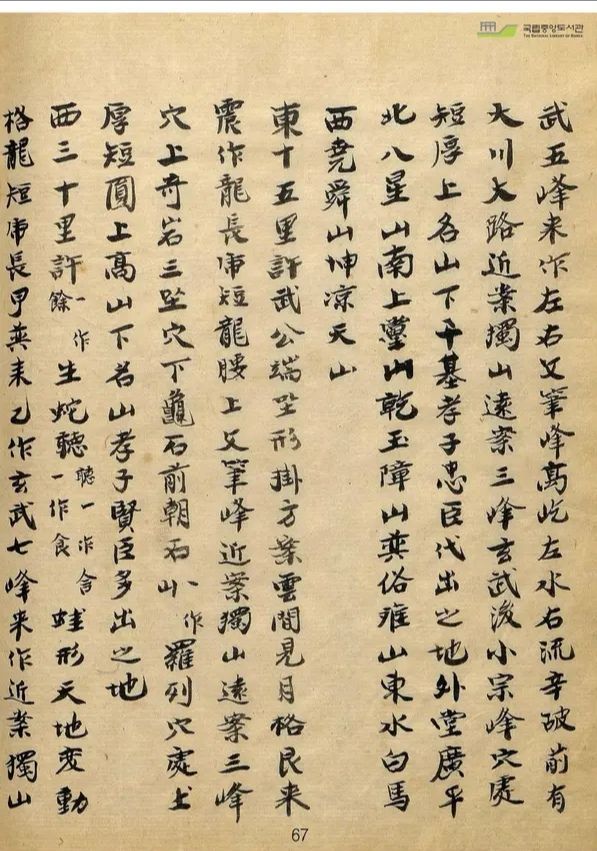 국립중앙도서관
THE NATIONAL LIBRARY OF KOREA
武五峰来作左右文筆峰高屹左水右流辛破前有
大川大路近案獨山遠案三峰玄武後小宗峰穴處
短厚上名山下千基孝子忠臣代出之地外堂廣平
北八星山南上靈山乾玉障山巽俗離山東水白馬
西堯舜山坤凉天山
東十五里許武公端坐形掛方案雲間見月格艮来
震作龍長席短龍腰上文筆峰近案獨山遠案三峰
穴上奇岩三坐穴下龜石前朝石山一作羅列穴處上
厚短圓上高山下名山孝子賢臣多出之地
西三十里許一作餘生蛇聽一作食聽一作含蛙形天地変動
格龍短席長甲巽来乙作玄武七峰来作近案獨山
67